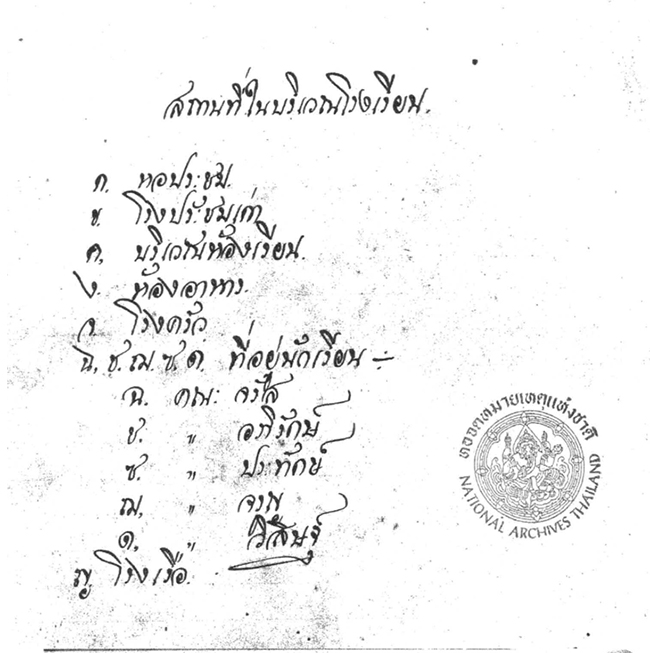 สถานที่ในบริเวณโรงเรียน.
ก. หอประชุม.
ข. โรงประชุมเก่า
ค. บริเวณห้องเรียน.
ง. ห้องอาหาร.
จ โรงครัว
ฉ, ช. ฌ. ซ. ด. ที่อยู่นักเรียน :–
ฉ. คณะ
ช. "
ซ. " ประทักษ์
ฌ, "
ด, "
ญ โรงเรือ.
หอจดหมายเหตุแห่งชาติ
NATIONAL ARCHIVES THAILAND